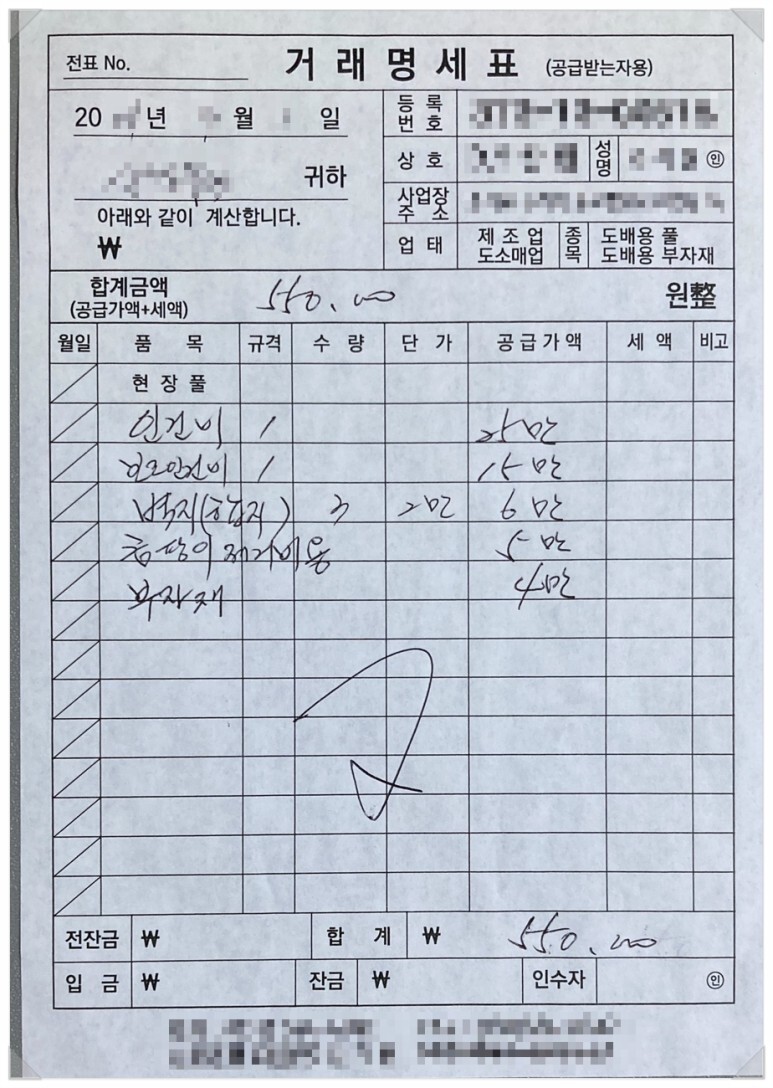 전표 No.
거 래 명 세 표 (공급받는자용)
20 년 월 일
귀하
아래와 같이 계산합니다.
₩
등 록 번 호
상 호 성 명 ㊞
사업장 주 소
업 태 제 조 업 도소매업 종 목 도배용 풀 도배용 부자재
합계금액 (공급가액+세액) 550.000 원整
월일 품 목 규격 수 량 단 가 공 급 가 액 세 액 비고
현 장 풀
인건비 1 25만
보조인건비 1 15만
벽지(합지) 3 2만 6만
곰팡이 제거비용 5만
부자재 4만
전잔금 ₩ 합 계 ₩ 550.000
입 금 ₩ 잔금 ₩ 인수자 ㊞